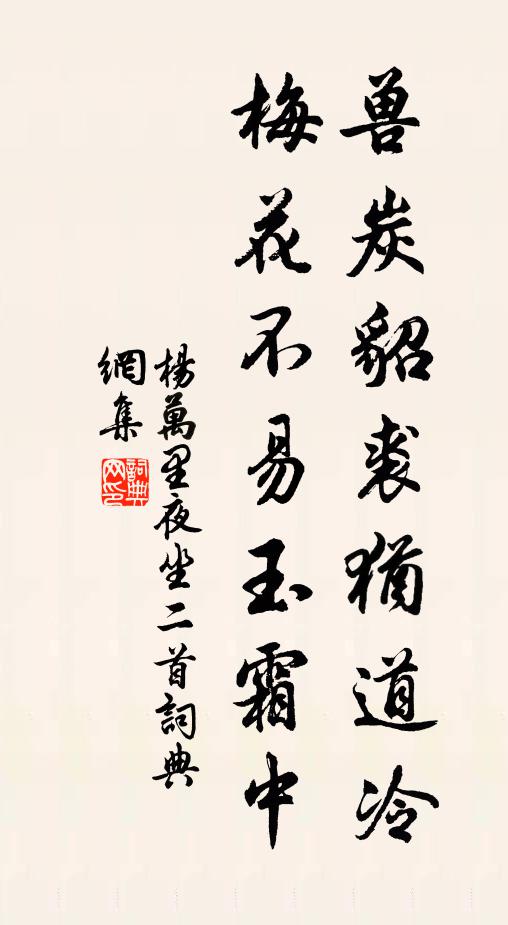 兽炭貂裘犹道冷
梅花不易玉霜中
楊萬里夜坐二首詞典
網集
詞典
网印